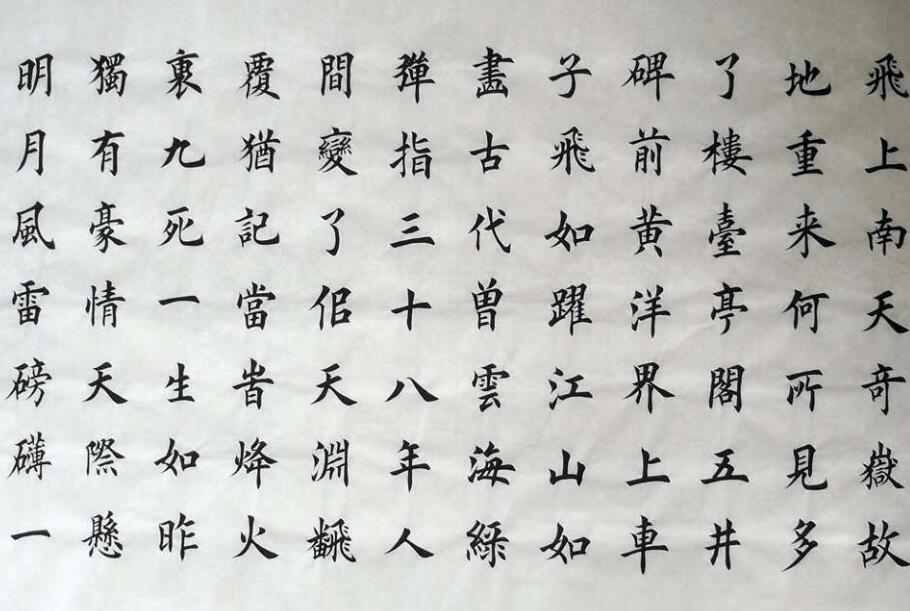 飛上南天竒嶽故
地重来何所見多
了樓臺亭閣五井
碑前黄洋界上車
子飛如躍江山如
畫古代曾雲海綠
彈指三十八年人
間變了佀天淵飜
覆猶記當旹烽火
裏九死一生如昨
獨有豪情天際懸
明月風雷磅礴一